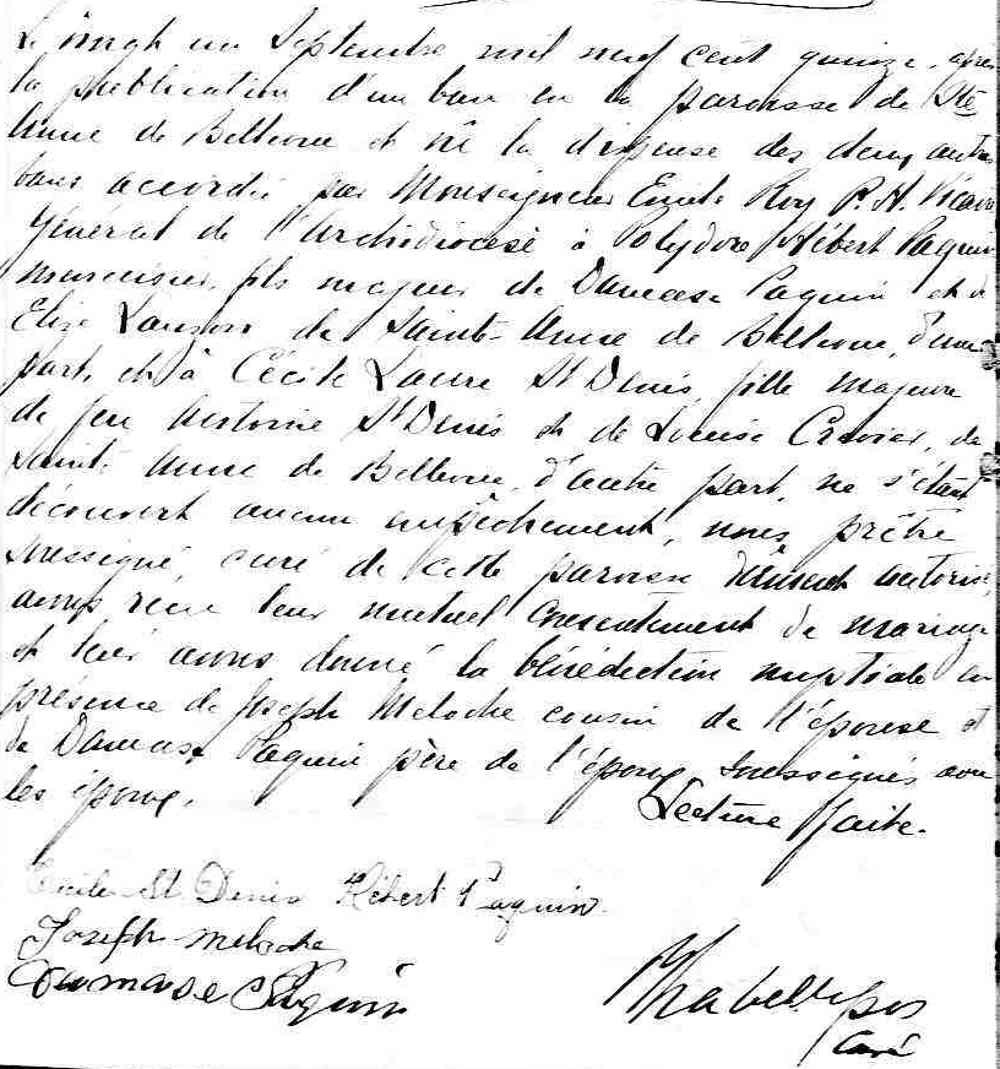 Le vingt un Septembre mil neuf cent quinze, après
la publication d'un ban en la paroisse de Ste
Anne de Bellevue et vû la dispense des deux autres
bans accordée par Monseigneur Emile Roy P.A. Vicaire
Général de l'Archidiocèse à Polydore Hébert Paquin
menuisier, fils majeur de Damase Paquin et de
Elise Lauzon de Sainte-Anne de Bellevue, d'une
part, et à Cécile Laure St Denis, fille majeure
de feu Antoine St Denis et de Louise Crevier, de
Sainte Anne de Bellevue, d'autre part, ne s'étant
découvert aucun empêchement, nous, prêtre
soussigné, curé de cette paroisse dûment autorisé,
avons reçu leur mutuel consentement de mariage
et leur avons donné la bénédiction nuptiale en
présence de Joseph Meloche cousin de l'épouse et
de Damase Paquin père de l'époux soussignés avec
les époux. Lecture faite.
Cécile St. Denis Hébert Paquin
Joseph Meloche
Damase Paquin
Curé